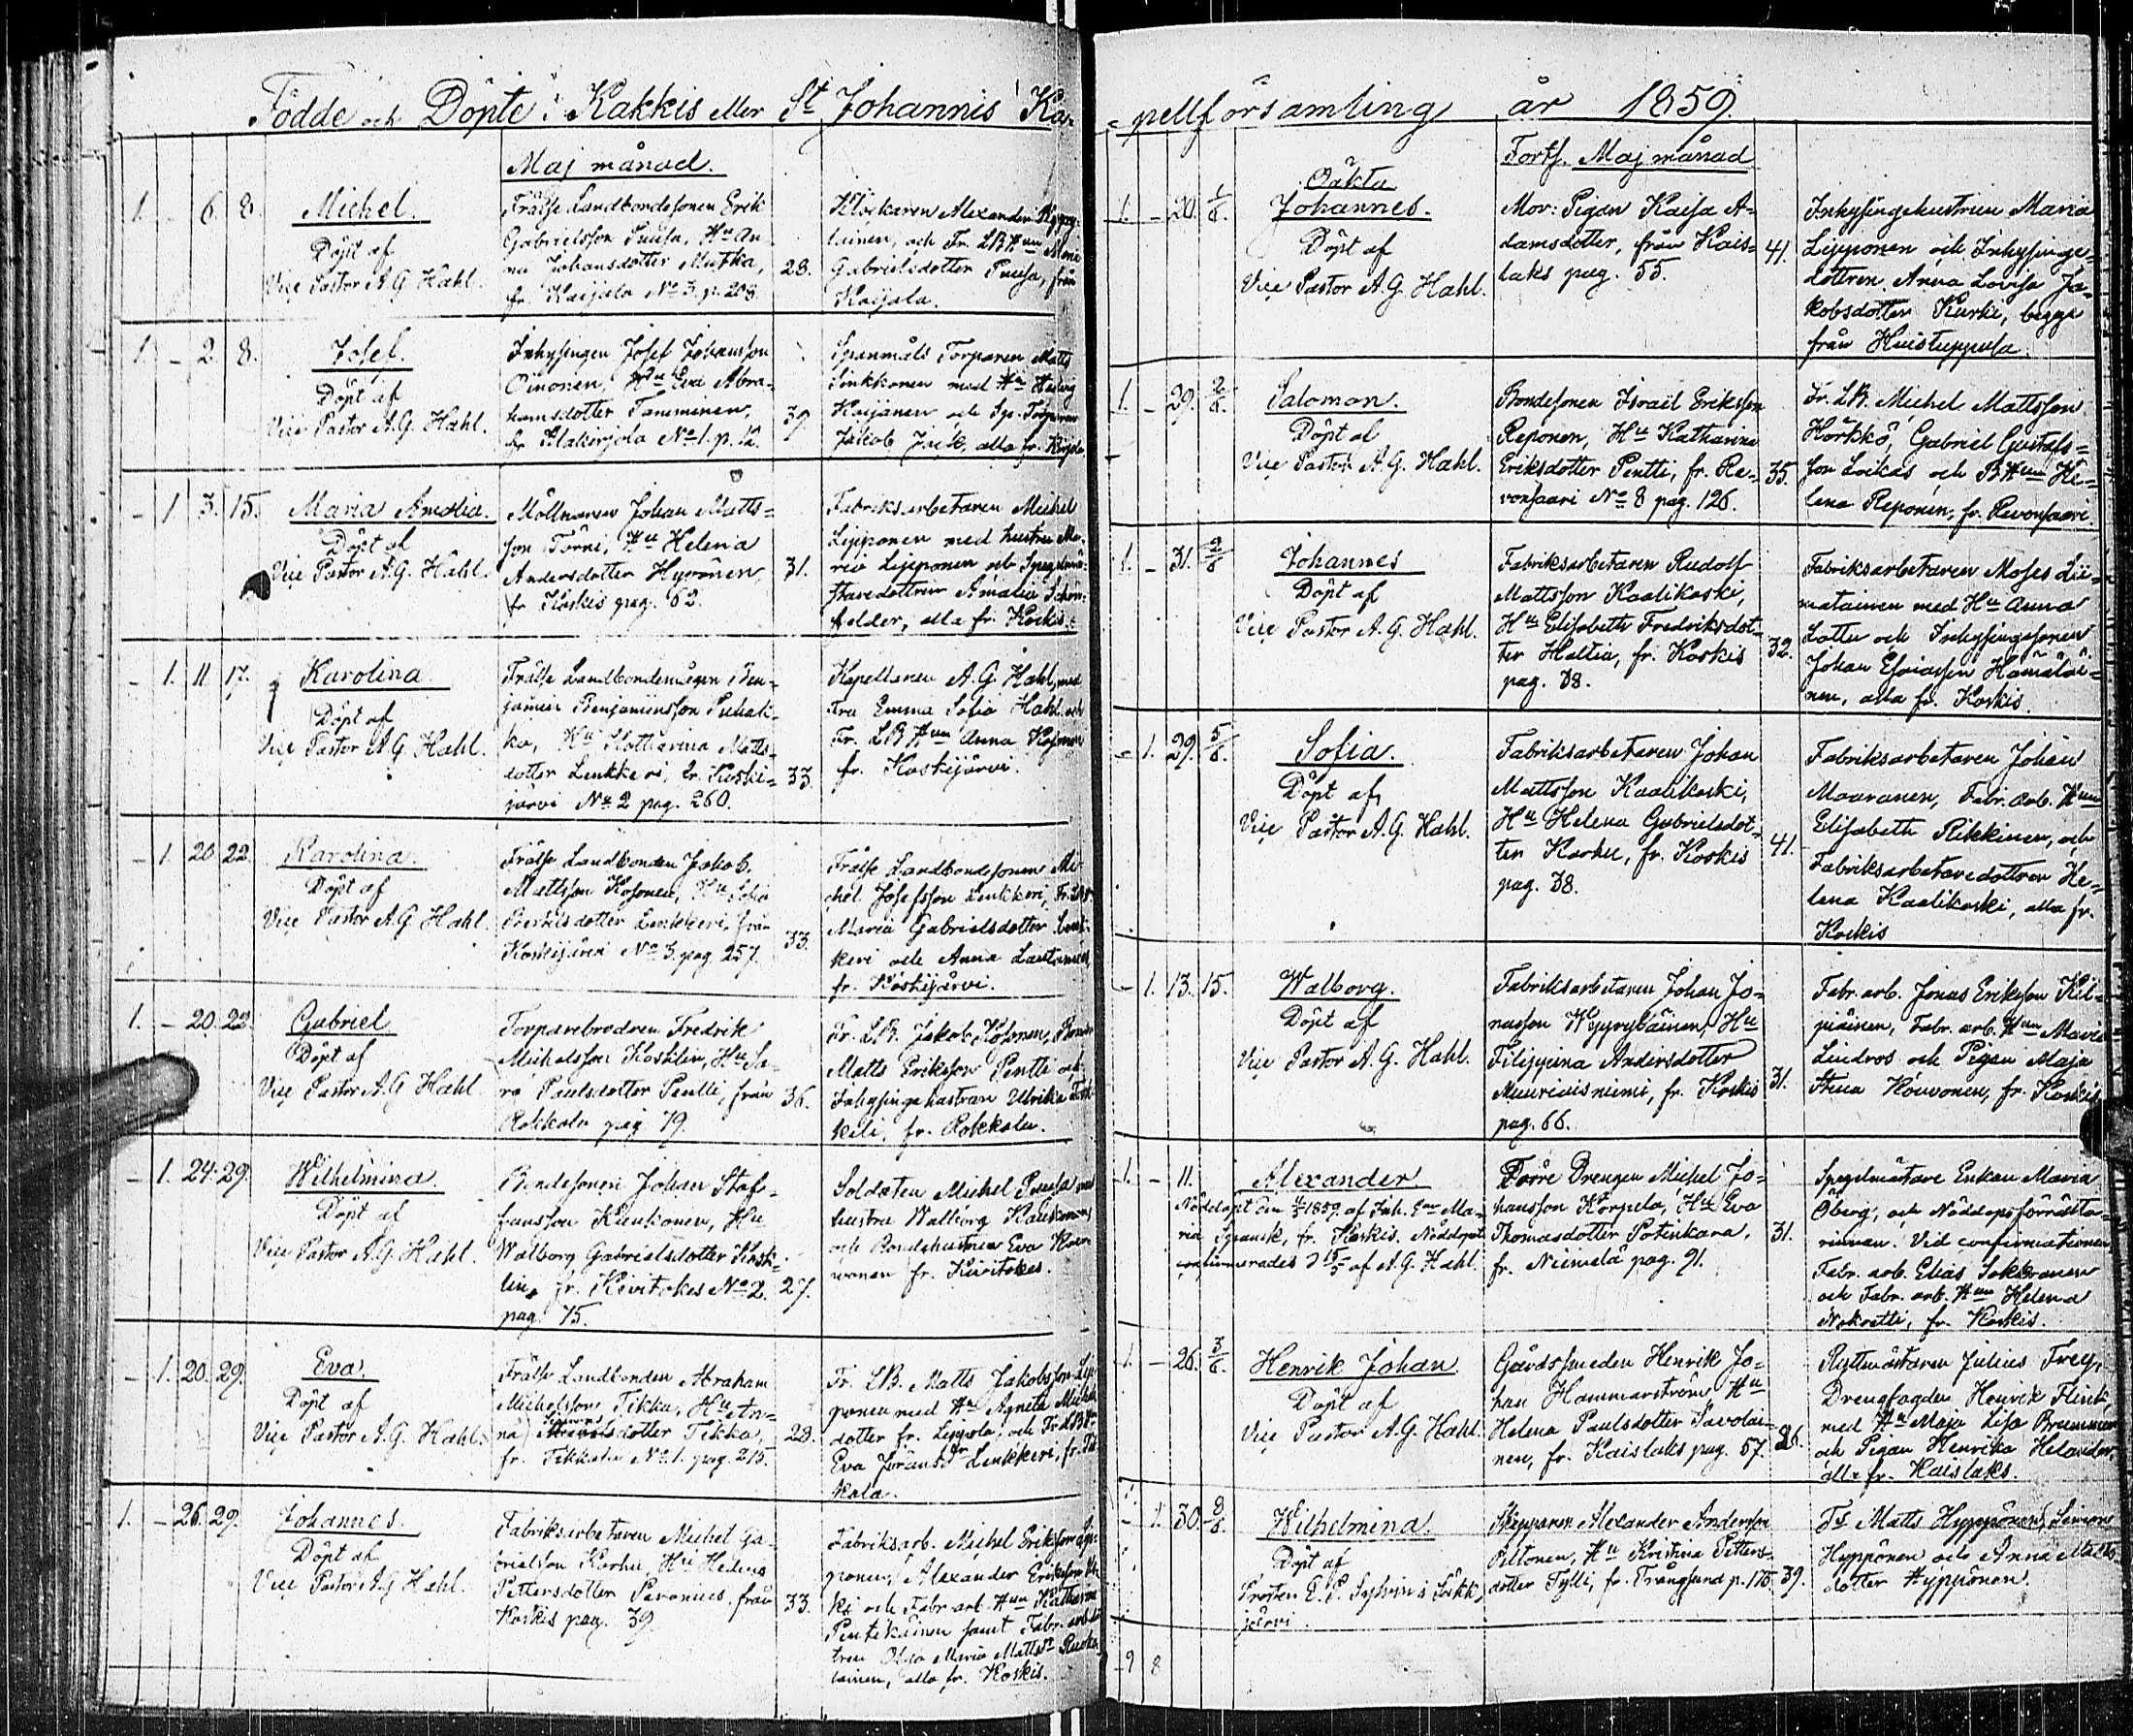 Födde och Döpte i Kakkis eller St Johannis Ka-
Maj månad.
1. - 6. 8. Michel.
Döpt af
Vice Pastor A.G. Hahl.
Frälse Landbondesonen Erik
Gabrielsson Pnusa, Hu An-
na Johansdotter Mutka,
fr. Kaijala No 3. p. 208.
28.
Klockaren Alexander
lainen, och Fr. LB Hun
Gabrielsdotter Pnusa, från
Kaijala.
1. - 2. 8. Josef.
Döpt af
Vice Pastor A.G. Hahl.
Inhysingen Josef Johansson
Oinonen, Hu Eva Abra-
hamsdotter Tamminen,
fr. No 1. p. 12.
39.
Spanmåls Torparen Matts
Sinkkonen med Hu Hedvig
Kaijanen och Sp. Torparen
Jakob Jäck, alla fr.
- 1 3. 15. Maria Amalia.
Döpt af
Vice Pastor A.G. Hahl.
Möllnaren Johan Matts-
son Törni, Hu Helena
Andersdotter Hyvönen,
fr. Koskis pag. 62.
31.
Fabriksarbetaren Michel
Lipponen med hustru Ma-
ria Lipponen och
Amalia Schön-
felder, alla fr. Koskis.
- 1. 11 17. Karolina
Döpt af
Vice Pastor A.G. Hahl.
Frälse Landbondemågen Ben-
jamin Benjaminsson
ka, Hu Katharina Matts-
dotter Leukkeri, fr. Koski-
järvi No 2 pag. 260.
33.
Kapellanen A.G. Hahl, med
Fru Emma Sofia Hahl och
Fr. LB Hun Anna Kosonen
fr. Koskijärvi.
- 1. 20. 22. Karolina.
Döpt af
Vice Pastor A.G. Hahl.
Frälse Landbonden Jakob
Mattsson Kosonen, Hu Sofia
Leukkeri, från
Koskijärvi No 3. pag. 257.
33.
Frälse Landbondesonen Mi-
chel Josefsson Leukkeri, Fr. LB
Maria Gabrielsdotter Leuk-
keri och Anna Lautanen,
fr. Koskijärvi.
1. - 20. 22. Gabriel
Döpt af
Vice Pastor A.G. Hahl.
Torparebrodren Fredrik
Michelsson Kosklin, Hu Sa-
ra Paulsdotter Pentti, från
Rokkala pag. 79.
36.
Fr. LB. Jakob Kosonen,
Matts Eriksson Pentti och
Inhysinge hustrun Ulrika
fr. Rokkala.
- 1. 24. 29. Wilhelmina.
Döpt af
Vice Pastor A.G. Hahl.
Bondesonen Johan Staf-
fansson Kiukonen, Hu
Walborg Gabrielsdotter Kosk-
lin, fr. Kiviitokes No 2.
pag. 75.
27.
Soldaten Michel Pnusa med
hustru Walborg
och Bondehustrun Eva
fr. Kiviitokes.
- 1. 20. 29. Eva.
Döpt af
Vice Pastor A.G. Hahl.
Frälse Landbonden Abraham
Michelsson Tikka, Hu An-
na dotter Tikka,
fr. Tikkala No 1. pag. 215.
28.
Fr. LB. Matts Jakobsson Lip-
ponen med Hu Agneta
dotter fr. Lippola, och Fr. LB
Eva Leukkeri, fr. Tik-
kala.
1. - 26. 29. Johannes.
Döpt af
Vice Pastor A.G. Hahl.
Fabriksarbetaren Michel Ga-
brielsson Karhu, Hu Helena
Pettersdotter Paronius, från
Koskis pag. 39.
33.
Fabriksarb. Michel Eriksson Lip-
ponen, Alexander Eriksson
och Fabr. arb. Hun Katharina
Pentikäinen samt Fabr. arb.
Maria
lainen, alla fr. Koskis.
-pellförsamling år 1859.
Forts. Maj månad
Oäkta
1. - 20. 1/6. Johannes.
Döpt af
Vice Pastor A.G. Hahl.
Mor: Pigan Kaisa A-
damsdotter, från Kais-
laks pag. 55.
41.
Inhysingehustrun Maria
Lipponen och Inhysinge-
dottren Anna Lovisa Ja-
kobsdotter Kurki, begge
från
1. - 29. 2/6. Salomon.
Döpt af
Vice Pastor A.G. Hahl.
Bondesonen Israil Eriksson
Reponen, Hu Katharina
Eriksdotter Pentti, fr. Re-
vonsaari No 8 pag. 126.
35.
Fr. LB. Michel Mattsson
Hörkkö, Gabriel Gustafs-
son Loikas och B Hun He-
lena Reponen, fr. Revonsaari.
1. - 31. 2/6 Johannes
Döpt af
Vice Pastor A.G. Hahl.
Fabriksarbetaren Rudolf
Mattsson Kaalikoski,
Hu Elisabeth Fredriksdot-
ter Haltia, fr. Koskis
pag. 38.
32.
Fabriksarbetaren Moses Lii-
matainen med Hu Anna
Lotta och Inhysingesonen
Johan Esaiasson Hämäläi-
nen, alla fr. Koskis.
- 1. 29. 5/6. Sofia.
Döpt af
Vice Pastor A.G. Hahl.
Fabriksarbetaren Johan
Mattsson Kaalikoski,
Hu Helena Gabrielsdot-
ter Karhu, fr. Koskis
pag. 38.
41.
Fabriksarbetaren Johan
Maaranen, Fabr. arb. Hun
Elisabeth Rikkinen, och
Fabriksarbetaredottren He-
lena Kaalikoski, alla fr.
Koskis
- 1. 13. 15. Walborg.
Döpt af
Vice Pastor A.G. Hahl.
Fabriksarbetaren Johan Jo-
nasson Hu
Filippina Andersdotter
Muuriaisniemi, fr. Koskis
pag. 66.
31.
Fabr. arb. Jonas Eriksson Kil-
piäinen, Fabr. arb. Hun Maria
Lindros och Pigan Maja
Stina Kouvonen, fr. Koskis
1. - 11. Alexander
Nöddöpt den 1859 af Enk. Ma-
ria fr. Koskis. Nöddopet
confirmerades d 15/5 af A.G. Hahl.
Förre Drengen Michel Jo-
hansson Korpela, Hu Eva
Thomasdotter Potinkara,
fr. Niemelä pag. 91.
31.
Spegelmästare Enkan Maria
Öberg, och Nöddopsförrätta-
rinnan. Vid confirmationen
Fabr. arb. Elias Sokkonen
och Fabr. arb. Hun Helena
fr. Koskis.
1. - 26. 3/6. Henrik Johan
Döpt af
Vice Pastor A.G. Hahl.
Gårdssmeden Henrik Jo-
han Hammarström Hu
Helena Paulsdotter Savolai-
nen, fr. Kaislaks pag. 57.
26.
Ryttmästaren Julius Frey,
Drengfogden Henrik Flink
med Hu Maja Lisa Brummer
och Pigan Henrika Helander,
alla fr. Kaislaks.
- 1. 30. 8/6. Wilhelmina.
Döpt af
Prosten E. E. Sylvin i Säkk-
järvi.
Skepparen Alexander Andersson
Peltonen, Hu Kristina Petters-
dotter Tylli, fr. Trångsund p. 176.
39.
Matts Hyppönen, Simon
Hyppönen och Anna Matts-
dotter Hyppönen.
9 8